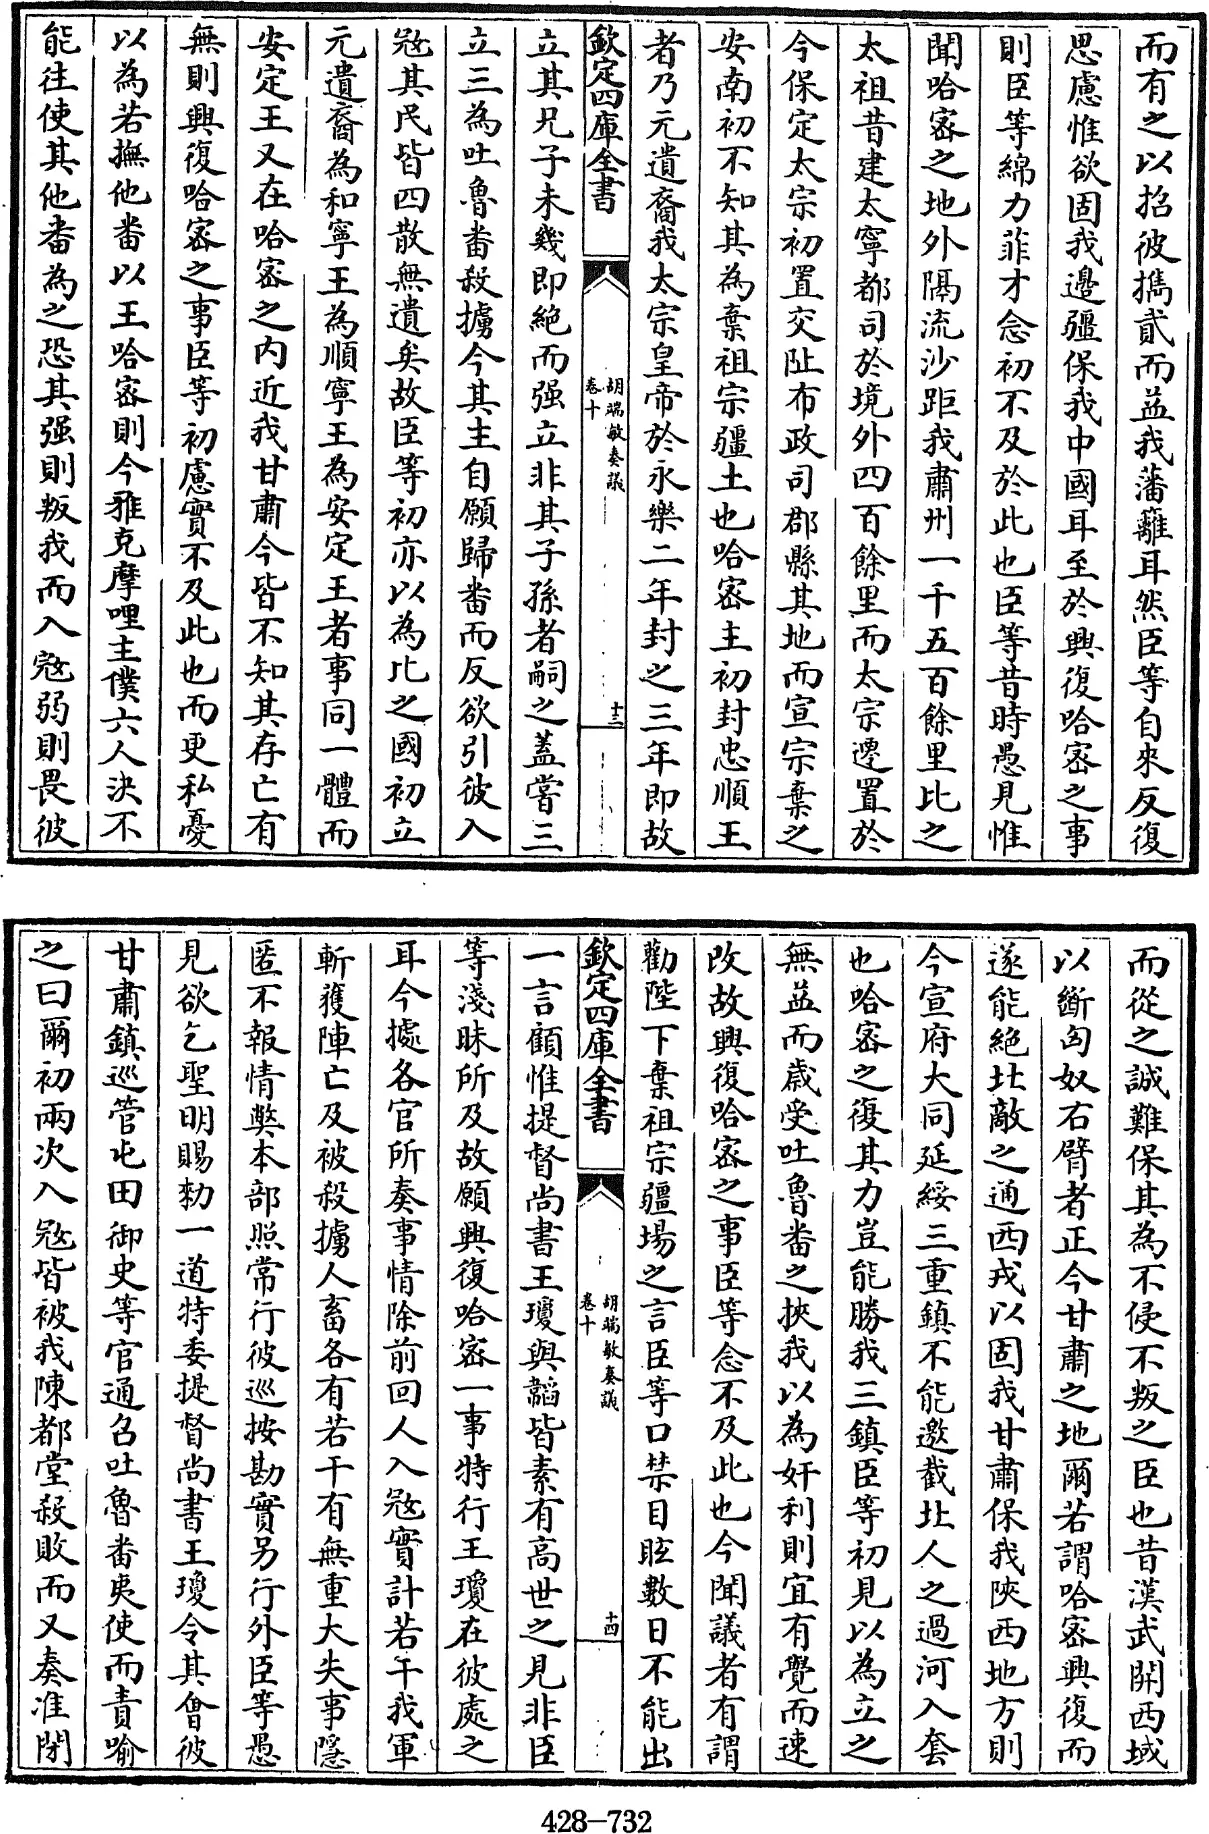 而有之以招彼攜貳而益我藩籬耳然臣等自來反復
思慮惟欲固我邊疆保我中國耳至於興復哈密之事
則臣等綿力菲才念初不及於此也臣等昔時愚見惟
聞哈密之地外隔流沙距我肅州一千五百餘里比之
太祖昔建太寧都司於境外四百餘里而太宗遷置於
今保定太宗初置交阯布政司郡縣其地而宣宗棄之
安南初不知其為棄祖宗疆土也哈密主初封忠順王
者乃元遺裔我太宗皇帝於永樂二年封之三年即故
欽定四庫全書
胡端敏奏議
卷十
十三
立其兄子未幾即絶而强立非其子孫者嗣之蓋嘗三
立三為吐魯番殺擄今其主自願歸番而反欲引彼入
寇其民皆四散無遺矣故臣等初亦以為比之國初立
元遺裔為和寧王為順寧王為安定王者事同一體而
安定王又在哈密之内近我甘肅今皆不知其存亡有
無則興復哈密之事臣等初慮實不及此也而更私憂
以為若撫他番以王哈密則今雅克摩哩主僕六人決不
能往使其他番為之恐其强則叛我而入寇弱則畏彼
而從之誠難保其為不侵不叛之臣也昔漢武開西域
以斷匈奴右臂者正今甘肅之地爾若謂哈密興復而
遂能絶北敵之通西戎以固我甘肅保我陝西地方則
今宣府大同延綏三重鎮不能邀截北人之過河入套
也哈密之復其力豈能勝我三鎮臣等初見以為立之
無益而歲受吐魯番之挾我以為奸利則宜有覺而速
改故興復哈密之事臣等念不及此也今聞議者有謂
勸陛下棄祖宗疆場之言臣等口禁目眩數日不能出
欽定四庫全書
胡端敏奏議
卷十
十四
一言顧惟提督尚書王瓊與韜皆素有高世之見非臣
等淺昧所及故願興復哈密一事特行王瓊在彼處之
耳今據各官所奏事情除前回人入寇實計若干我軍
斬獲陣亡及被殺擄人畜各有若干有無重大失事隱
匿不報情弊本部照常行彼巡按勘實另行外臣等愚
見欲乞聖明賜勅一道特委提督尚書王瓊令其會彼
甘肅鎮巡管屯田御史等官通召吐魯番夷使而責喻
之曰爾初兩次入寇皆被我陳都堂殺敗而又奏准閉
428-732